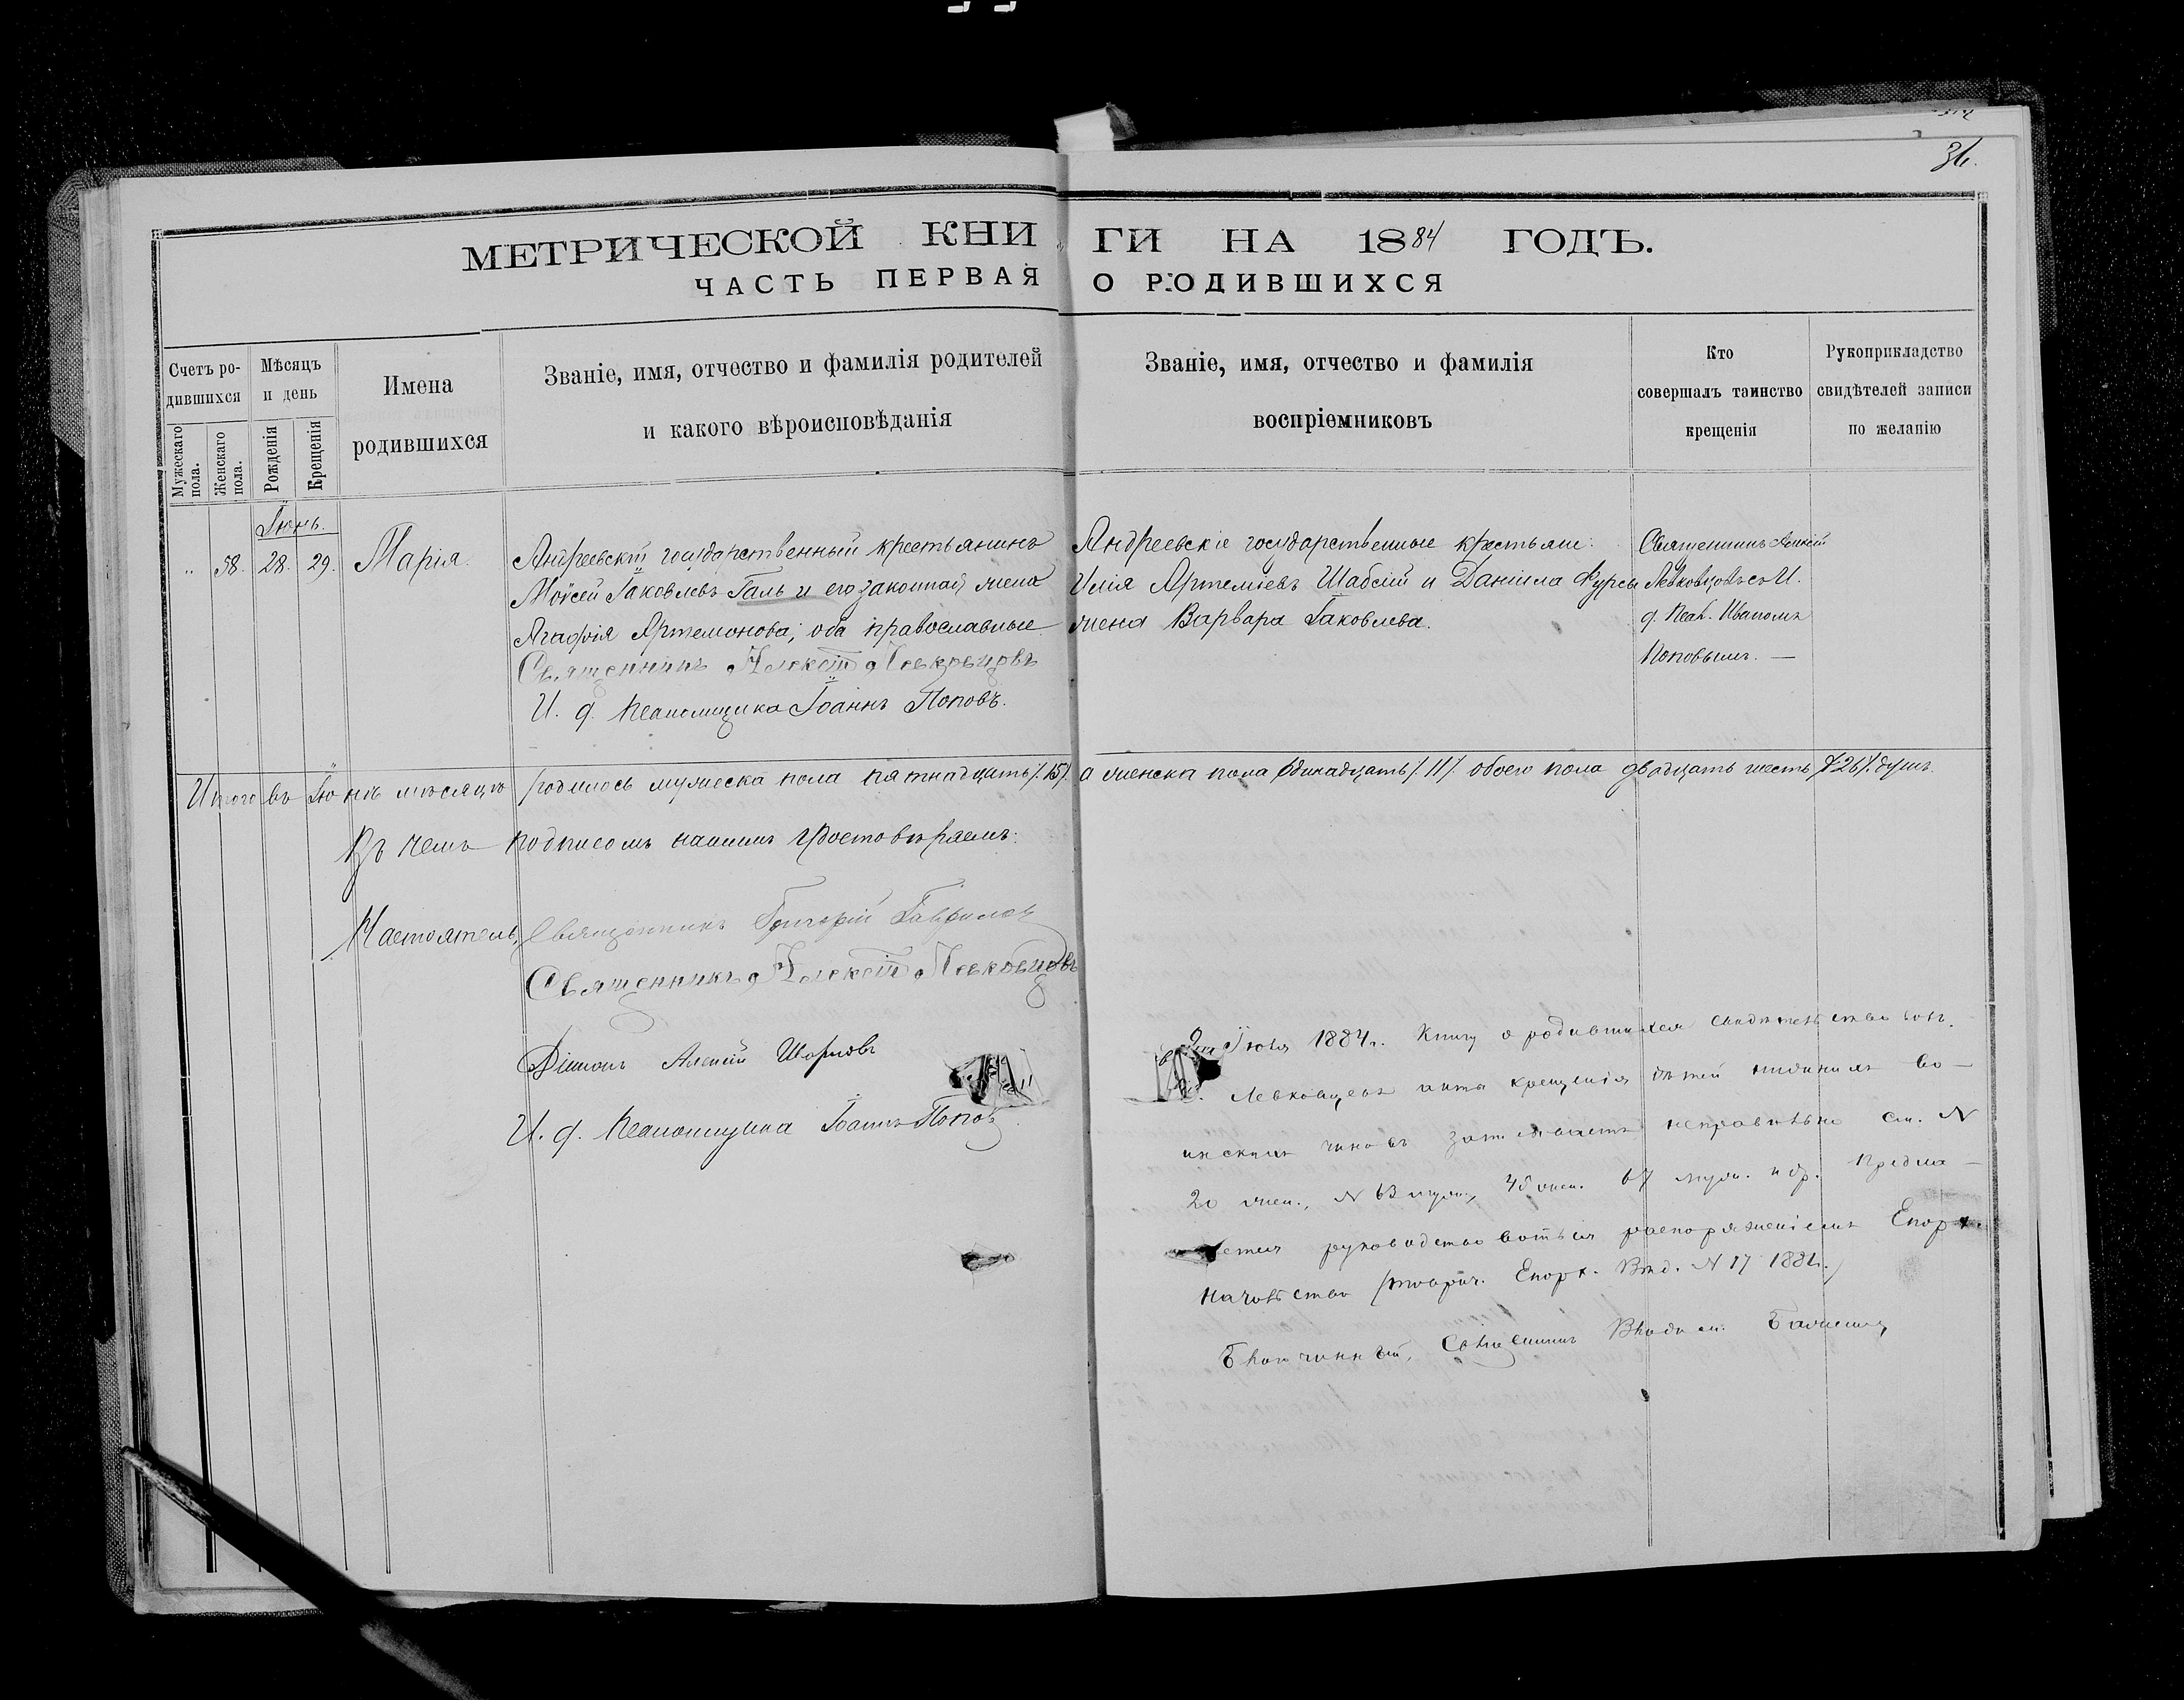 36.
МЕТРИЧЕСКОЙ КНИГИ НА 1884 ГОДЪ.
ЧАСТЬ ПЕРВАЯ О РОДИВШИХСЯ
Счетъ ро-
дившихся
Мужескаго пола.
Женскаго пола.
Мѣсяцъ
и день
Рожденія
Крещенія
Имена
родившихся
Званіе, имя, отчество и фамилія родителей
и какого вѣроисповѣданія
Званіе, имя, отчество и фамилія
воспріемниковъ
Кто
совершалъ таинство
крещенія
Рукоприкладство
свидѣтелей записи
по желанію
Іюнь.
„ 58. 28. 29. Марія.
Андреевскій государственный крестьянинъ
Моѵсей Іаковлевъ Галь и его законная жена
Агафія Артемонова; оба православные
Священникъ Алексій Левковцовъ
И. д. псаломщика Іоаннъ Поповъ.
Андреевскіе государственные крестьяне:
Илія Артеміевъ Шабсій и Даніила Фурсы
жена Варвара Іаковлева.
Священникъ Алексій
Левковцовъ съ И.
д. Псал. Иваномъ
Поповымъ. —
Итого въ Іюнѣ мѣсяцѣ родилось мужеска пола пятнадцать /15/ а женска пола одинадцать /11/ обоего пола двадцать шесть /26/ душъ.
Въ чемъ подписомъ нашимъ удостовѣряемъ:
Настоятель, Священникъ Григорій Гаврилов
Священникъ Алексій Левковцовъ
Діаконъ Алексій
И. д. Псаломщика Іоаннъ Попов
Іюля 1884 г. Книгу о родившихся свидѣтельствовалъ.
Левковцевъ акта крещенія дѣтей нижнихъ во-
инскихъ чиновъ записываетъ неправильно см. N
20 жен., N 63 муж., 45 жен. 67 муж. и др. Предла-
гается руководствоваться распоряженіемъ Епарх.
начальства Епарх. Вѣд. N 17 1882.
Благочинный, Священникъ Владим.